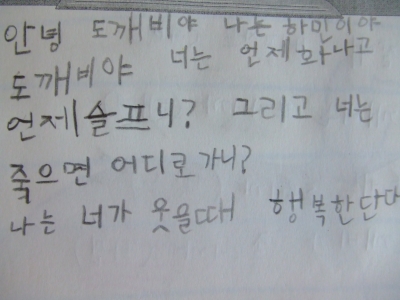 안녕 도깨비야 나는 하민이야
도깨비야 너는 언제화나고
언제슬프니? 그리고 너는
죽으면 어디로가니?
나는 너가 웃을때 행복한단다